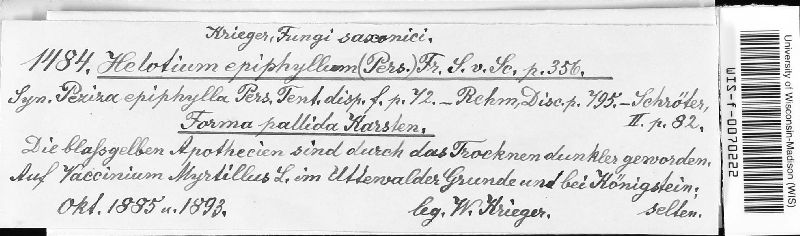 Krieger, Fungi saxonici.
1484. Helotium epiphyllum (Pers.) Fr. S. v. Sc. p. 356.
Syn. Peziza epiphylla Pers. Tent. disp. f. p. 72. – Rehm, Disc. p. 795. – Schröter,
Forma pallida Karsten. II. p. 82.
Die blaßgelben Apothecien sind durch das Trocknen dunkler geworden.
Auf Vaccinium Myrtillus L. im Uttewalder Grunde und bei Königstein;
Okt. 1885 u. 1893. leg. W. Krieger. selten.
University of Wisconsin-Madison (WIS)
WIS-f-0070222